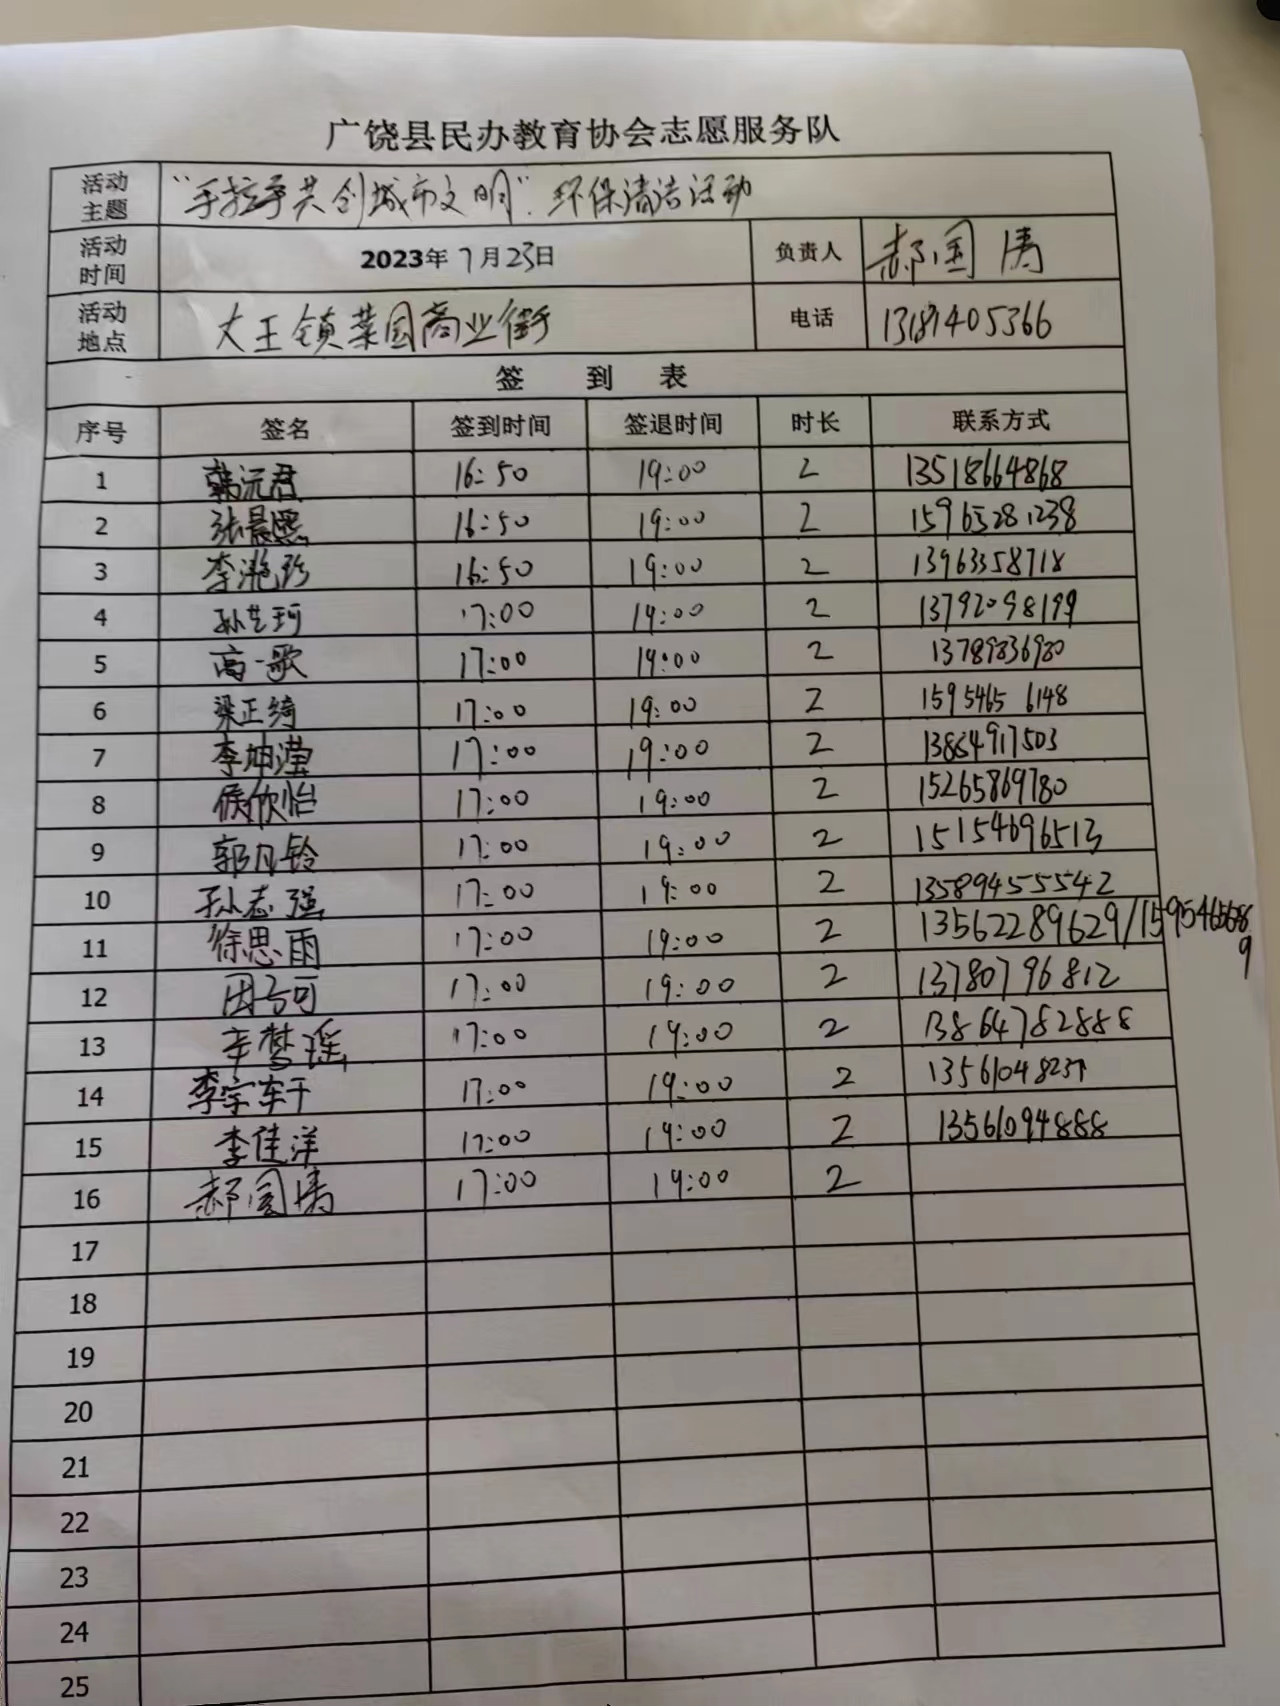 广饶县民办教育协会志愿服务队
活动主题 "手拉手共创城市文明".环保清洁活动
活动时间 2023年7月23日 负责人 郝国涛
活动地点 大王镇菜园商业街 电话 13181405366
签 到 表
序号 签名 签到时间 签退时间 时长 联系方式
1 韩沅君 16:50 19:00 2 13518664868
2 张晨熙 16:50 19:00 2 15965281238
3 李滟珍 16:50 19:00 2 13963358718
4 孙艺珂 17:00 19:00 2 13792098199
5 高一歌 17:00 19:00 2 13789836980
6 梁正绮 17:00 19:00 2 15954656148
7 李坤滢 17:00 19:00 2 13864917503
8 侯欣怡 17:00 19:00 2 15265869780
9 郭凡铃 17:00 19:00 2 15154696513
10 孙志强 17:00 19:00 2 13589455542
11 徐思雨 17:00 19:00 2 13562289629/15954656689
12 17:00 19:00 2 13780796812
13 辛梦瑶 17:00 19:00 2 13864782888
14 李宗轩 17:00 19:00 2
15 李佳洋 17:00 19:00 2 13561094888
16 郝国涛 17:00 19:00 2
17
18
19
20
21
22
23
24
25